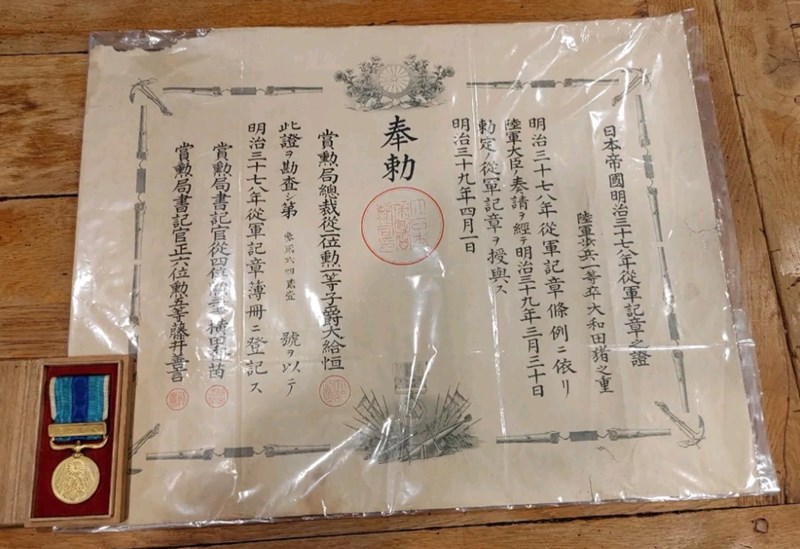 日本帝國明治三十七八年從軍記章之證
陸軍歩兵一等卒大和田猪之重
明治三十七八年從軍記章條例ニ依リ
陸軍大臣ノ奏請ヲ經テ明治三十九年三月三十日
勅定ノ從軍記章ヲ授與ス
明治三十九年四月一日
奉勅
賞勲局總裁從二位勲一等子爵大給恒
此證ヲ勘査シ第 號ヲ以テ
明治三十七八年從軍記章簿冊ニ登記ス
賞勲局書記官從四位勲三等横田香苗
賞勲局書記官正六位勲五等藤井善言